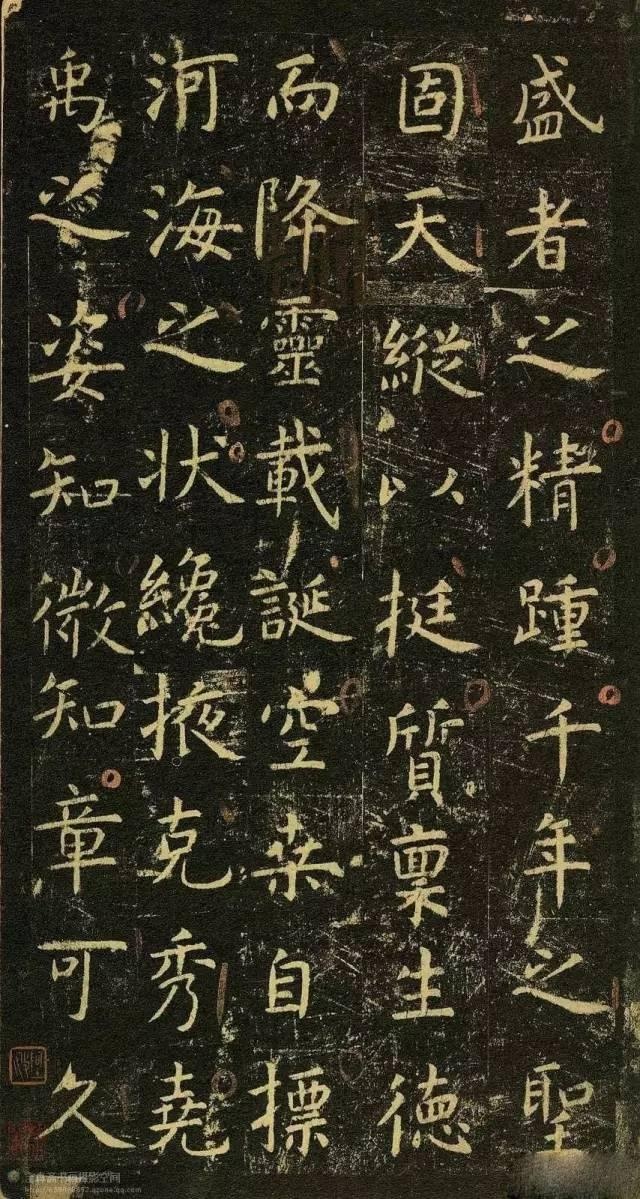 盛者之精踵千年之聖
固天縱以挺質禀生德
而降靈載誕空桒自標
河海之状纔掖克秀堯
禹之姿知微知章可久